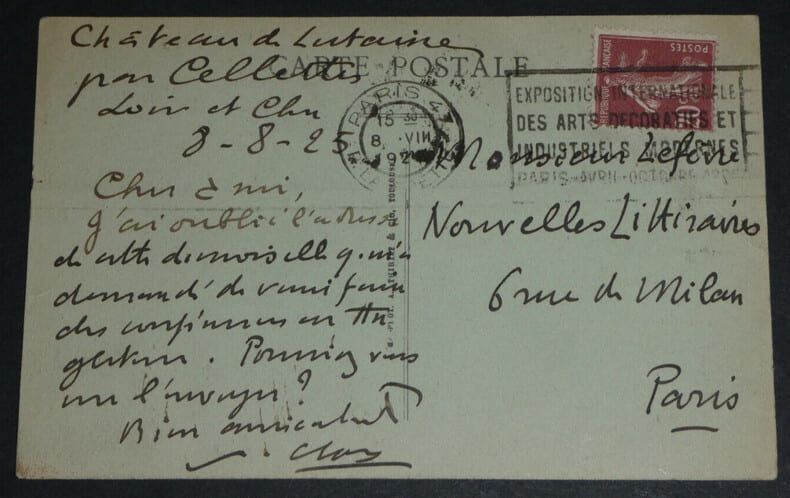 Château de Lutaine
CARTE POSTALE
par Cellettes
Loir et Cher
8-8-25
Cher ami,
J'ai oublié l'adresse
de cette demoiselle qui m'a
demandé de venir faire
des conférences en
Pourriez vous
me l'envoyer ?
Bien amicalement
POSTES
REPUBLIQUE FRANÇAISE
PARIS 47
15 30
8 VIII
EXPOSITION INTERNATIONALE
DES ARTS DECORATIFS ET
INDUSTRIELS MODERNES
PARIS-AVRIL-OCTOBRE 1925
Monsieur Lefèvre
Nouvelles Littéraires
6 rue de Milan
Paris